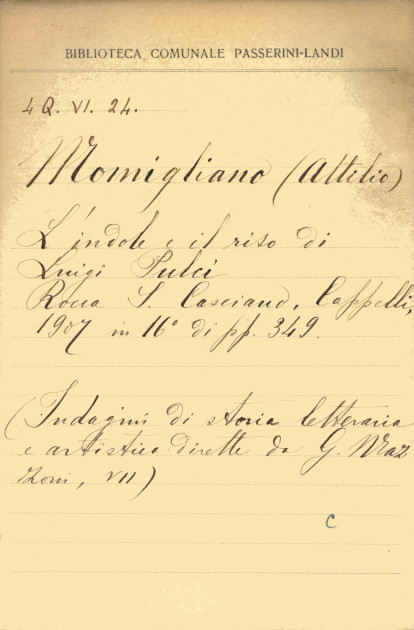 BIBLIOTECA COMUNALE PASSERINI-LANDI
4 Q. VI. 24.
Momigliano (Attilio)
L'indole e il riso di
Luigi Pulci
Rocca S. Casciano, Cappelli,
1907 in 16° di pp. 349.
(Indagini di storia letteraria
e artistica dirette da G. Maz
zoni, VII)
C